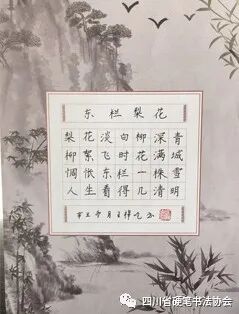 东栏梨花
梨花淡白柳深青
柳絮飞时花满城
惆怅东栏一株雪
人生看得几清明
四川省硬笔书法协会